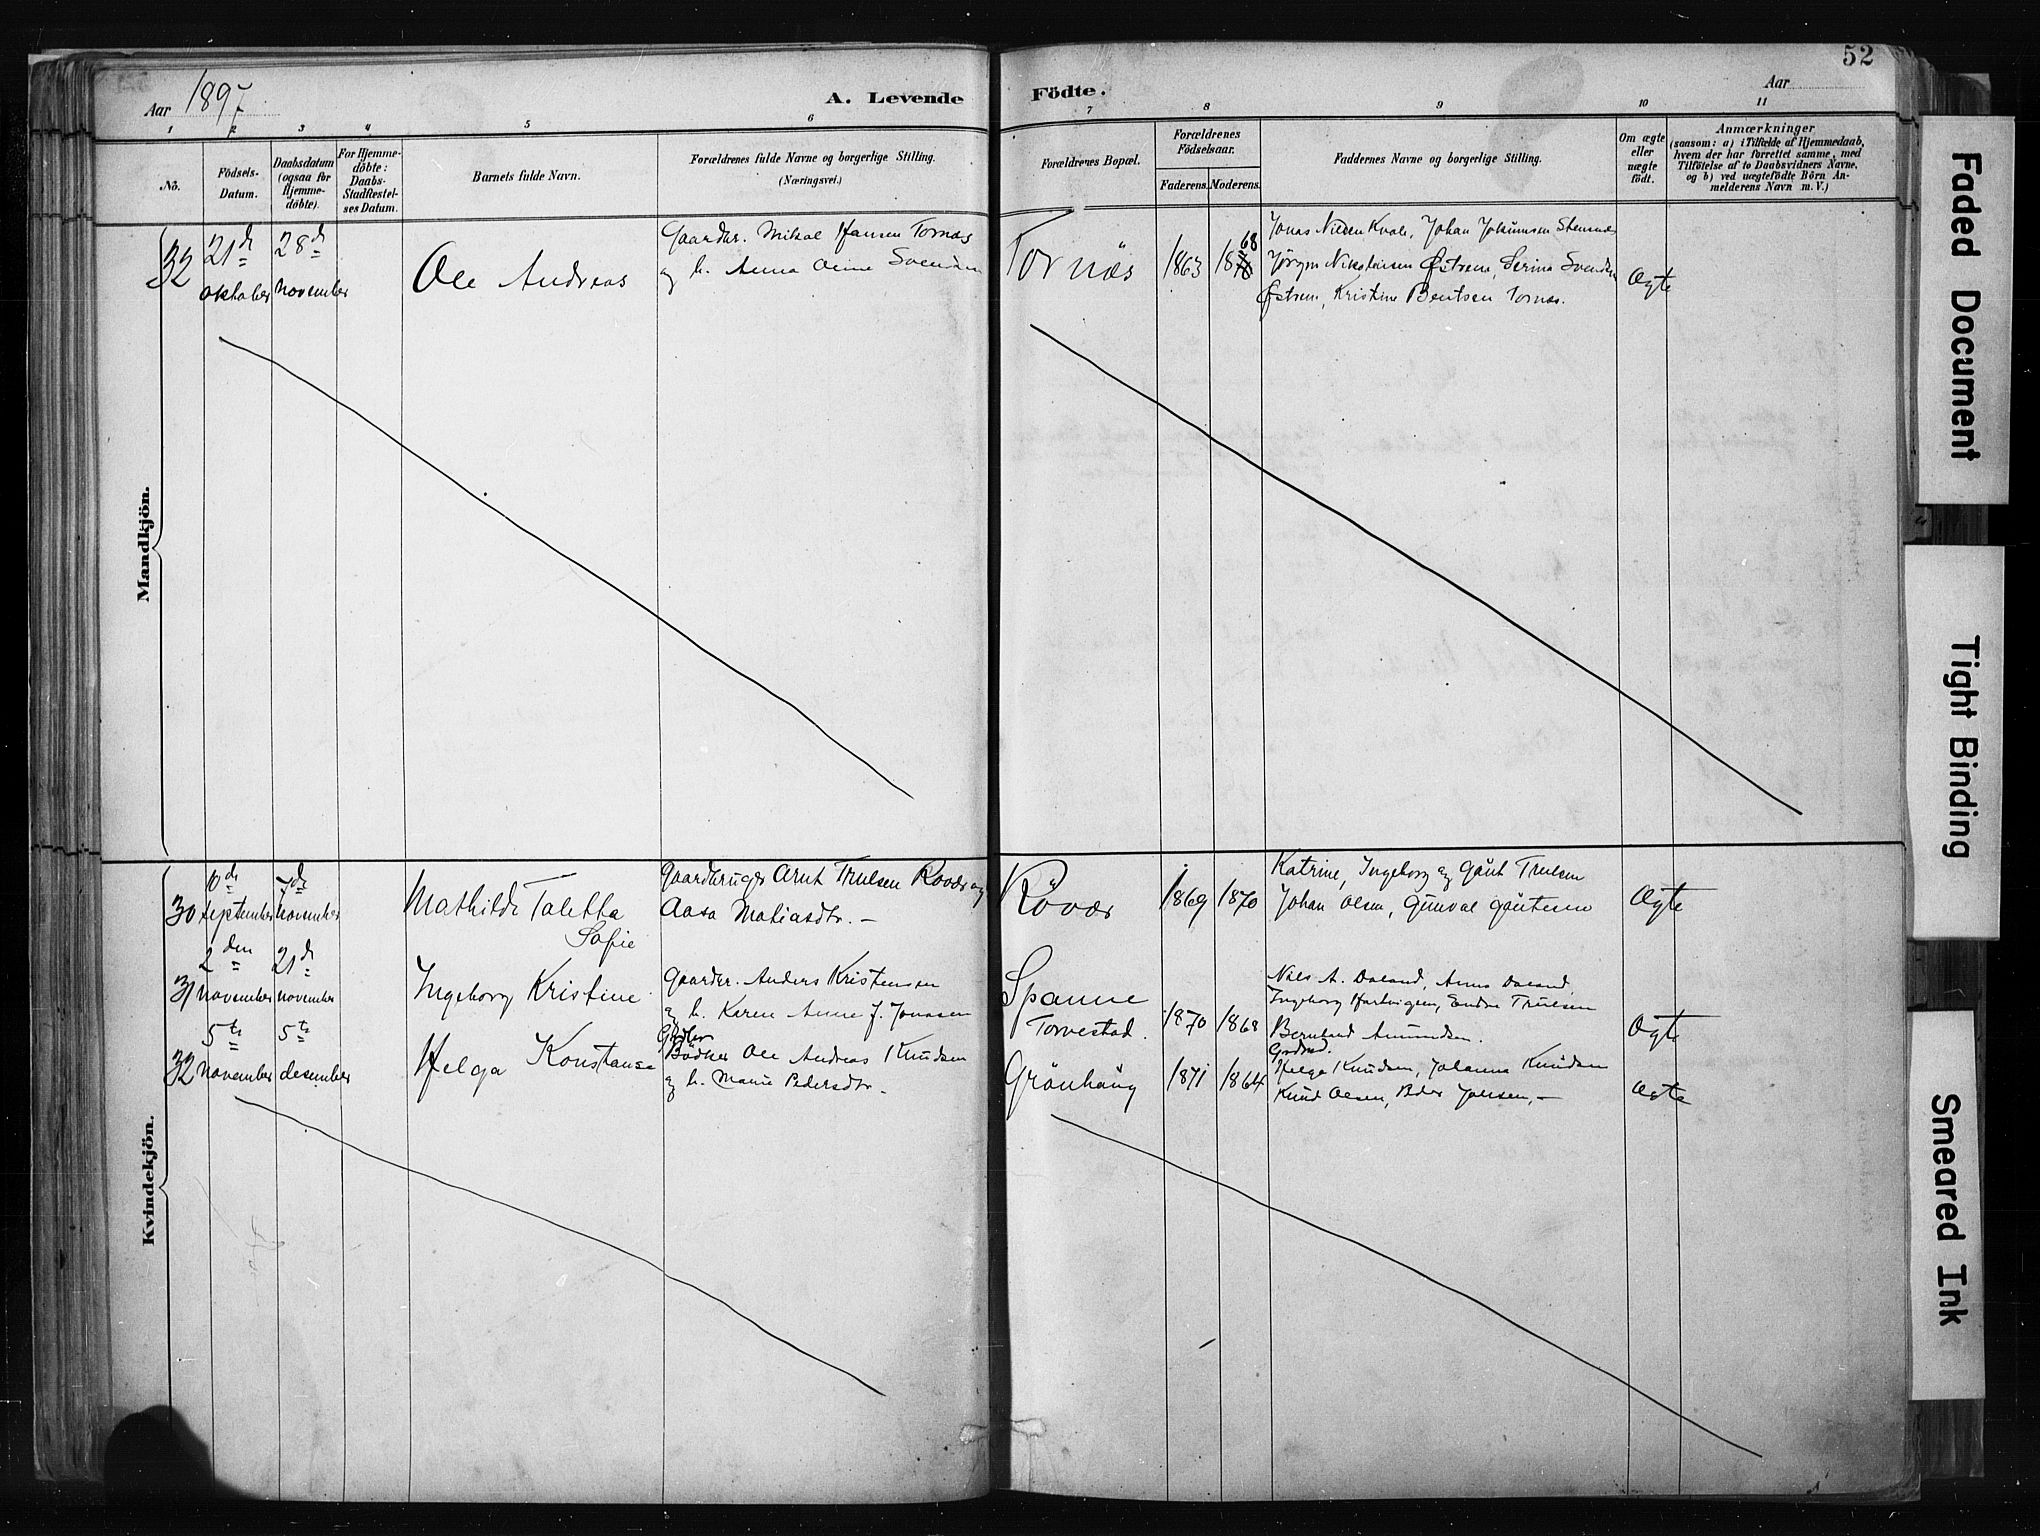 52
Aar 1897
A. Levende Födte.
Aar
1 2 3 4 5 6 7 8 9 10 11
No.
Födsels-
Datum.
Daabsdatum
(ogsaa for
Hjemme-
döbte).
For Hjemme-
döbte:
Daabs-
Stadfæstel-
ses Datum.
Barnets fulde Navn.
Forældrenes fulde Navne og borgerlige Stilling.
(Næringsvei.)
Forældrenes Bopæl.
Forældrenes
Födselsaar.
Faderens. Moderens.
Faddernes Navne og borgerlige Stilling.
Om ægte
eller
uægte
födt.
Anmærkninger
(saasom: a) i Tilfælde af Hjemmedaab,
hvem der har forrettet samme, med
Tilföielse af to Daabsvidners Navne,
og b) ved uægtefödte Börn An-
melderens Navn m. V.)
Mandkjön.
32
21de
oktober
28de
november
Ole Andreas
Gaardbr. Mikal Hansen Tornæs
og h. Anna Svendsen
Tornæs
1863
68
18
Jonas Nilsen Kvale, Johan
Jörgen Nikolaisen Østrem, Serina Svendsen
Østrem, Kristine Bentsen Tornæs.
Ægte
Kvindekjön.
30
10de
september
7de
november
Mathilde Taletta
Sofie
Gaardbruger Arnt Truelsen Rövær og
Aasa Matiasdtr. —
Rövær
1869
1870
Katrine, Ingeborg og Gaut Truelsen
Johan Olsen, Gunval Gautesen
Ægte
31
2den
november
21de
november
Ingeborg Kristine
Gaardbr. Anders Kristensen
og h. Karen Anne J. Jonassen
Spanne
Torvestad.
1870
1868
Nils A. Daland, Anna Daland,
Ingeborg Hartvigsen, Endre Truelsen
Bernhard Amundsen.
Ægte
32
5te
november
5te
desember
Helga Konstanse
Bödker Ole Andreas Knudsen
og h. Marie Pedersdtr.
Grönhaug
1871
1864
Helga Knudsen, Johanna Knudsen
Knud Olsen, Peder Johnsen, —
Ægte
Faded Document
Tight Binding
Smeared Ink